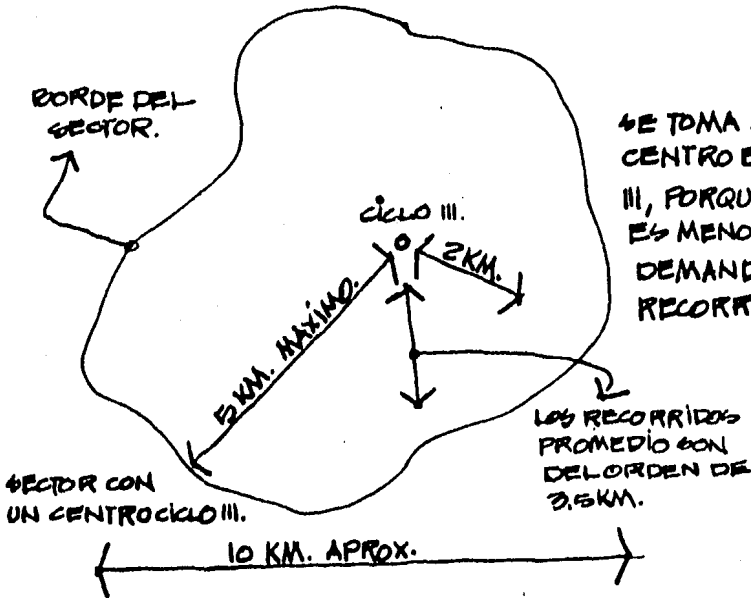 BORDE DEL
SECTOR.
SE TOMA
CENTRO
III,
ES
CICLO III.
2 KM.
5 KM. MÁXIMO.
LOS RECORRIDOS
PROMEDIO SON
DEL ORDEN DE
3.5 KM.
SECTOR CON
UN CENTRO CICLO III.
10 KM. APROX.